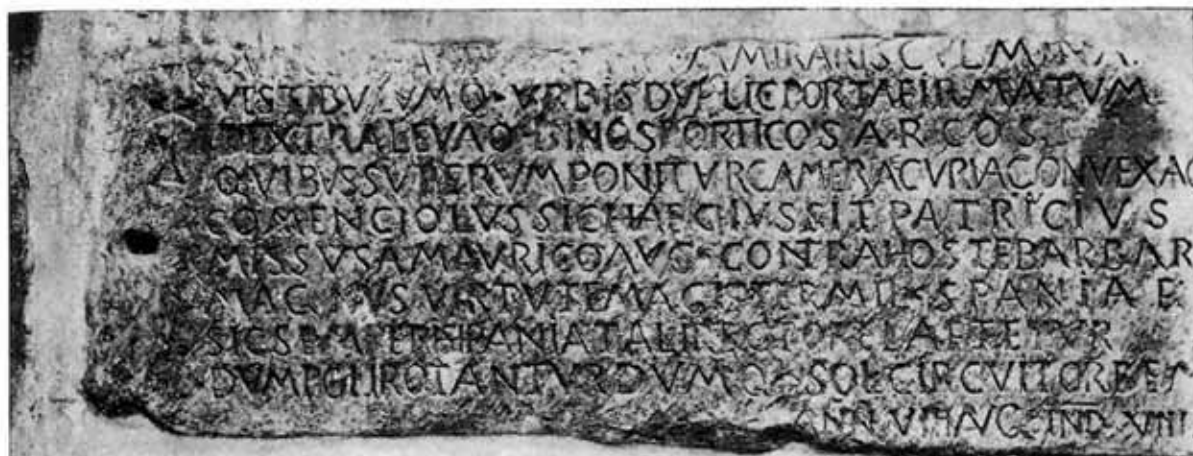 MIRARIS CVLMINA
VESTIBVLVMQ· VRBIS DVPLICI PORTA FIRMATVM
DEXTRA LEVAQ· BINOS PORTICOS ARCOS
QVIBVS SVPERVM PONITVR CAMERA CVRIA CONVEXAQ
COMENCIOLVS SIC HAEC IVSSIT PATRICIVS
MISSVS A MAVRICIO AVG· CONTRA HOSTE BARBAR
MAGNVS VIRTVTE MAGISTER MIL· SPANIAE
SIC SEMPER HISPANIA TALI RECTORE LAETETVR
DVM POLI ROTANTVR DVMQ· SOL CIRCVIT ORBEM
ANN· VIII AVG· IND· VIII